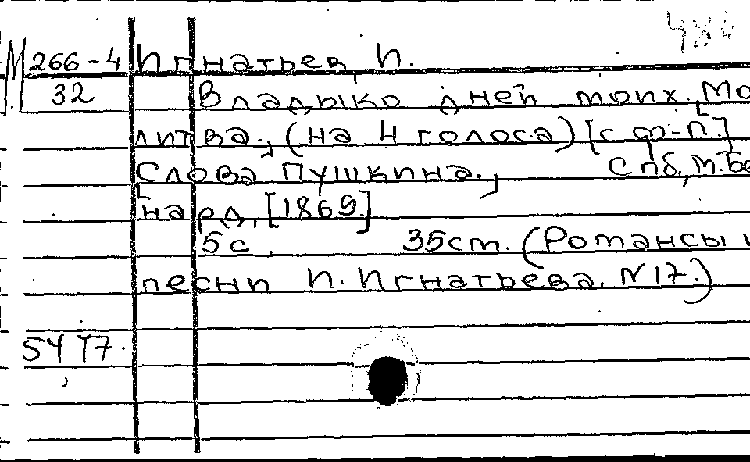 М 266-4 Игнатьев, И.
32 Владыко дней моих. Мо
литва, (на 4 голоса) [с ф.-п.]
Слова Пушкина. Спб, М. Бе
рнард, [1869.]
5 с. 35 см. (Романсы и
песни И. Игнатьева. N 17.)